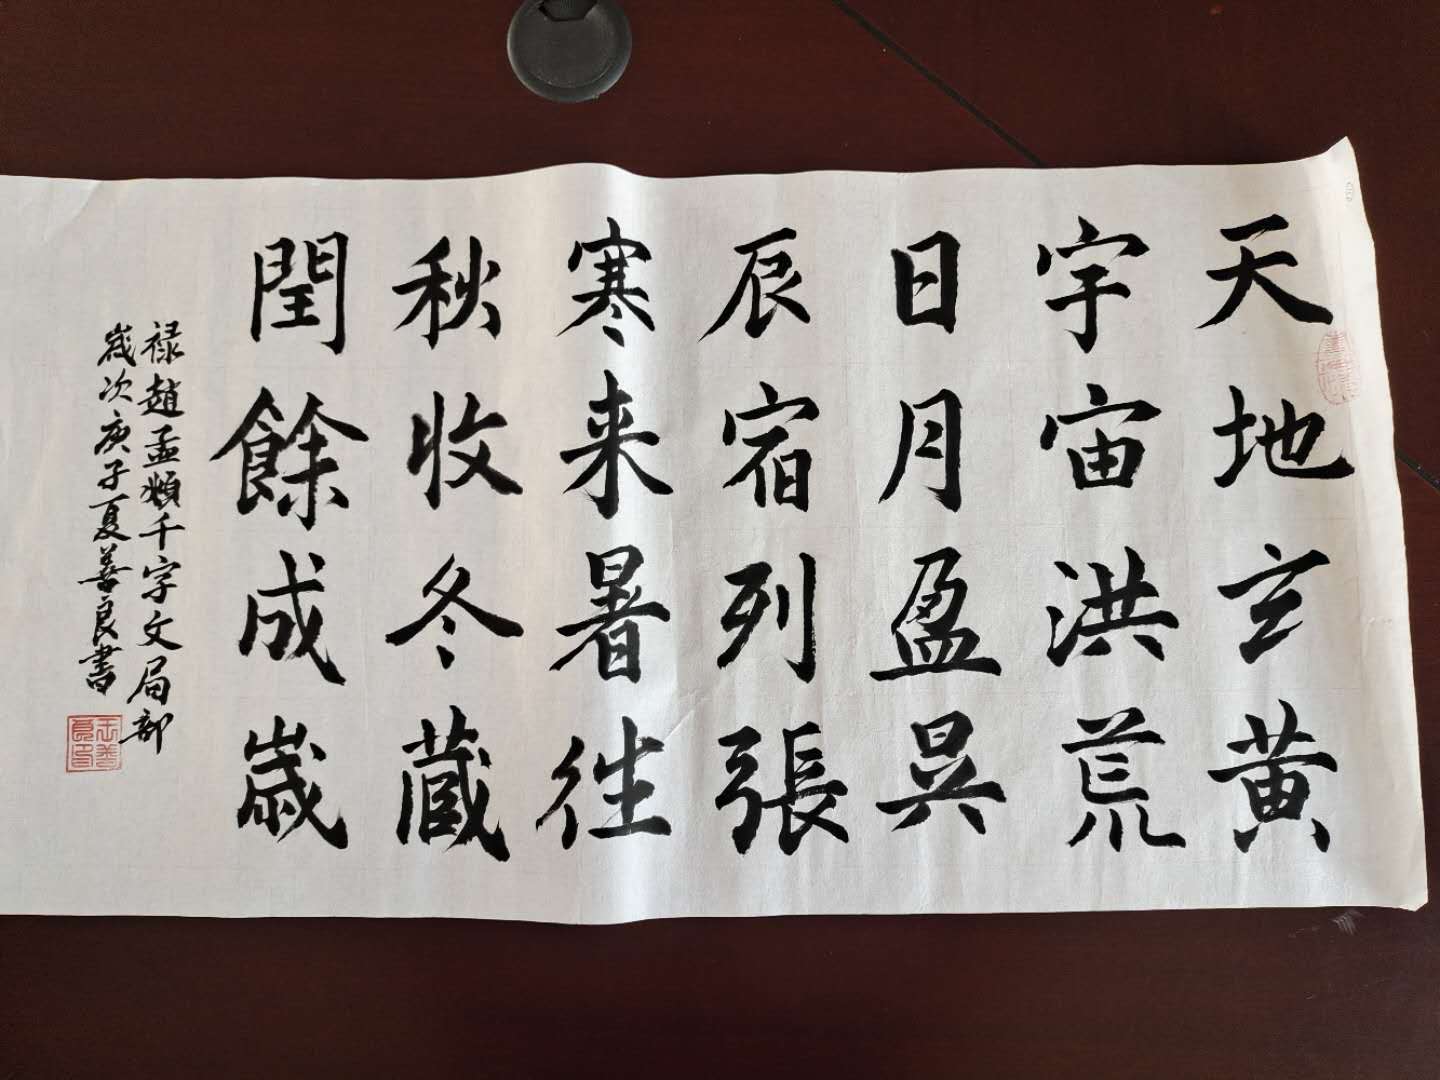 天地玄黄
宇宙洪荒
日月盈昃
辰宿列張
寒来暑往
秋收冬蔵
閏餘成歲
禄趙孟頫千字文局部
歲次庚子夏善良書
王善良印